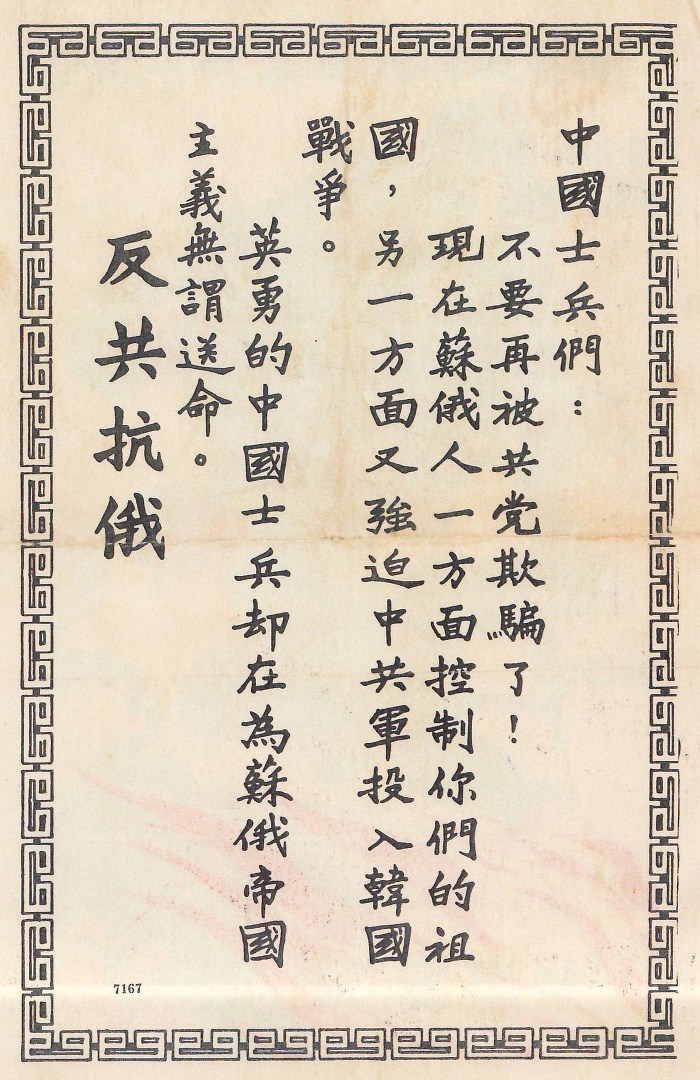 中國士兵們：
不要再被共党欺騙了！
現在蘇俄人一方面控制你們的祖
國，另一方面又強迫中共軍投入韓國
戰爭。
英勇的中國士兵却在為蘇俄帝國
主義無謂送命。
反共抗俄
7167